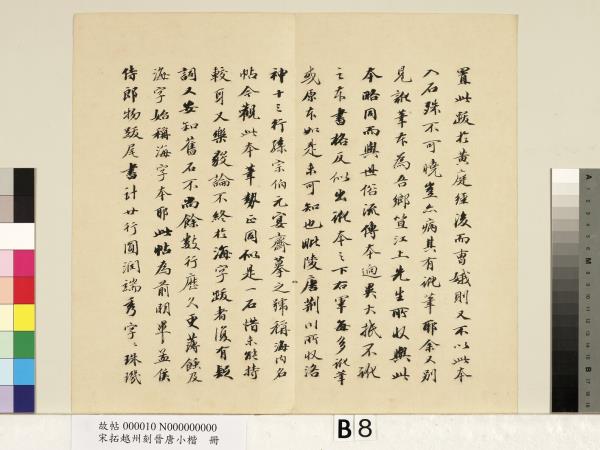 置此跋於黄庭經後而曹娥則又不以此本
入石殊不可曉豈亦病其有訛筆耶余又別
見訛筆本為吾鄉笪江上先生所收與此
本略同而與世俗流傳本迥異大抵不訛
之本書格反似出訛本之下右軍每多訛筆
或原本如是未可知也毗陵唐荆川所收洛
神十三行孫宗伯元宴齋摹之號稱海内名
帖今觀此本筆勢正同似是一石惜未能持
較耳又樂毅論不終於海字跋者復有疑
詞又安知舊石不尚餘数行歴久更薄蝕及
海字始稱海字本耶此帖為前明畢孟侯
侍郎物跋尾書計廿行圓潤端秀字々珠璣
故帖 000010 N000000000
宋拓越州刻晉唐小楷 冊
B8
A
M
B